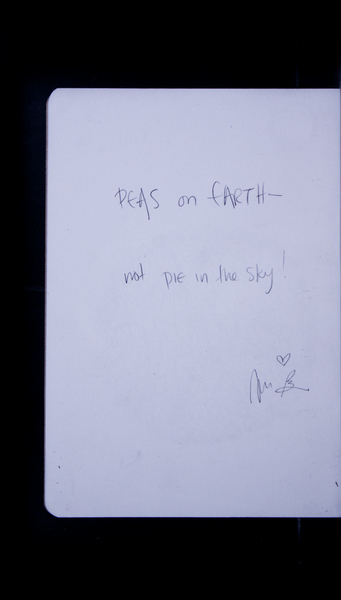 PEAS on EARTH—
not PIE in the sky!